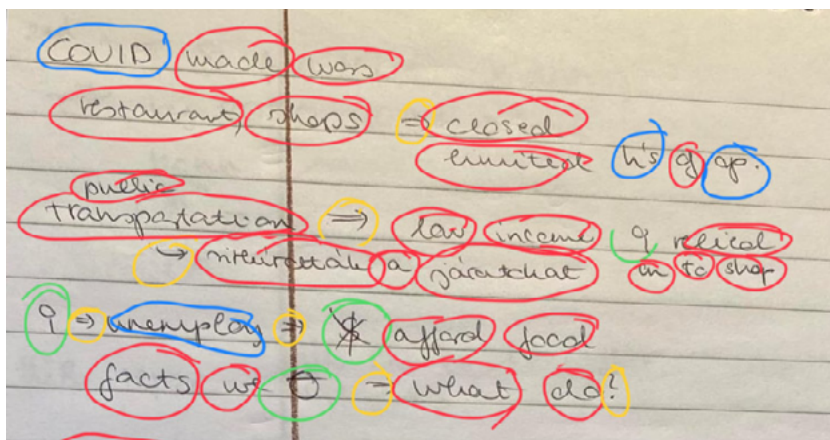 COVID made wors
restaurant, shops ⇒ closed
limited h's of op.
public
transportation ⇒ low income ♀ relied
on it to shop
↳ ritkították a járatokat
♀ ⇒ unemploy ⇒ afford food
facts we ⇒ what do?